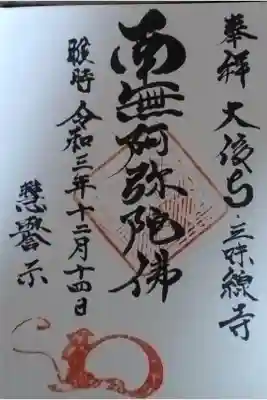 奉拝 大信寺 三味線寺
南無阿弥陀佛
時 令和三年十二月十四日
慧譽示